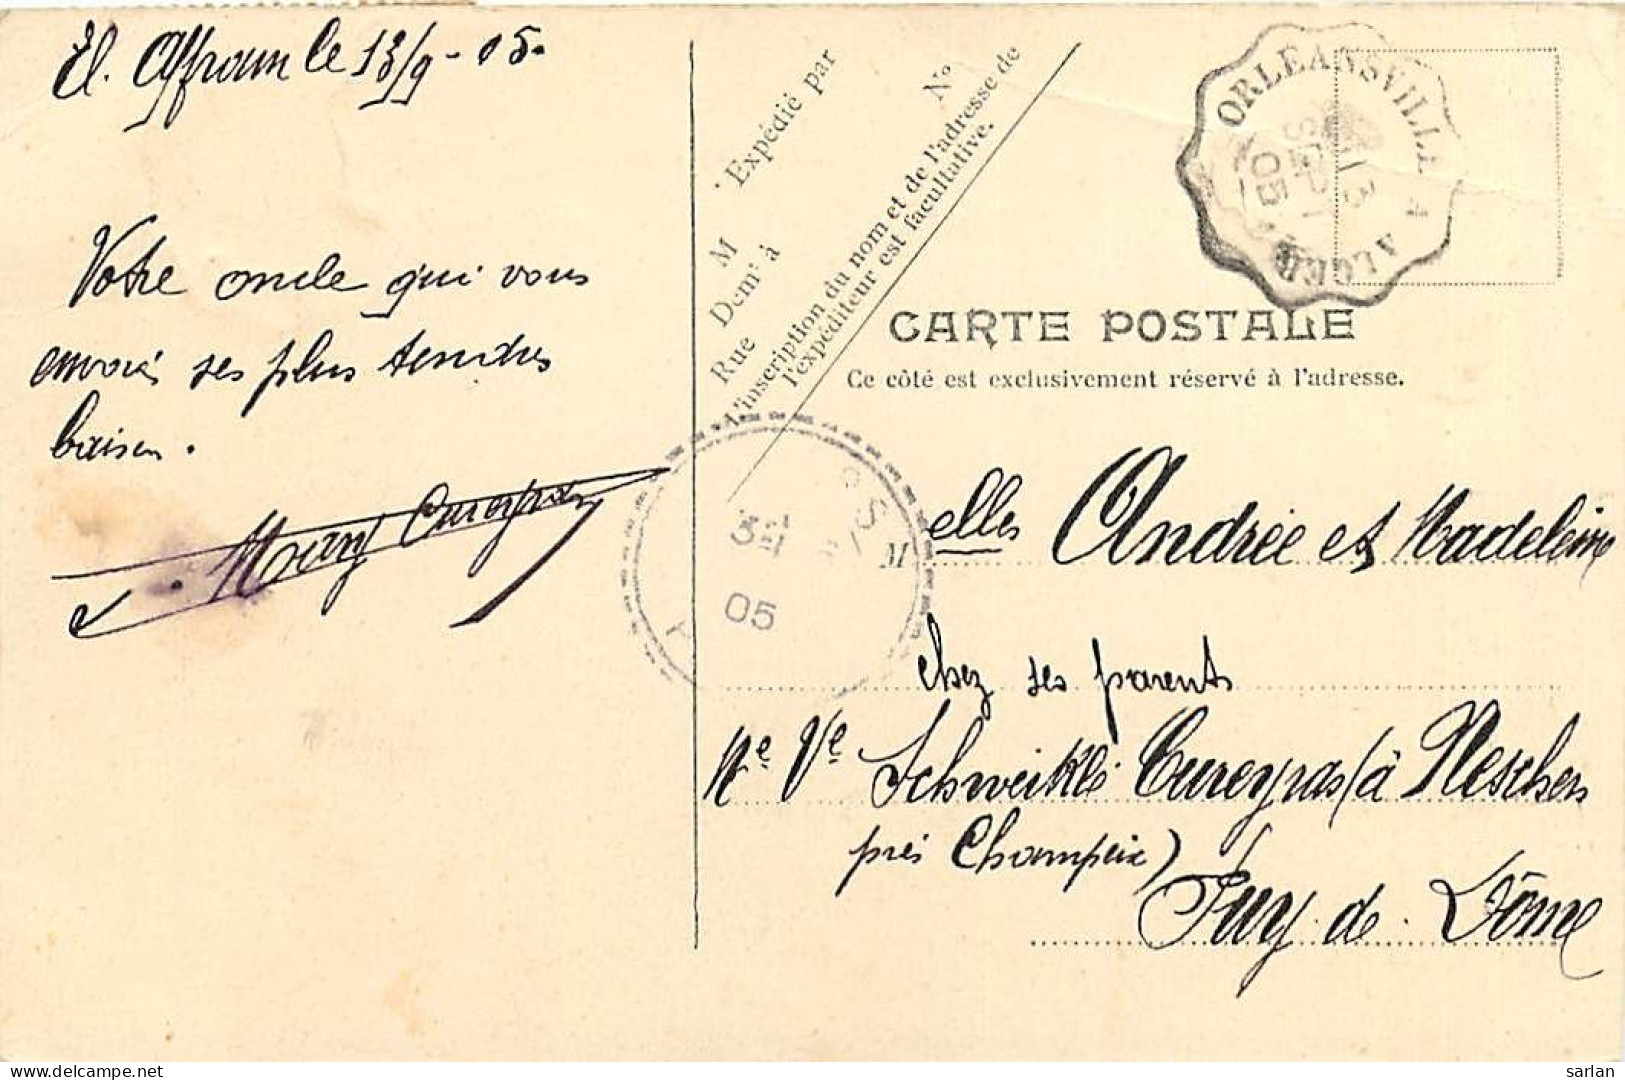 El. Affroun le 13/9-05.
Votre oncle qui vous
envoie ses plus tendres
baisers.
Cureyras
Expédié par
M
Dem<sup>t</sup> à
Rue
N°
L'inscription du nom et de l'adresse de
l'expéditeur est facultative.
ORLEANSVILLE A ALGER
13
SEPT
05
CARTE POSTALE
Ce côté est exclusivement réservé à l'adresse.
05
Melles Andrée et Madeleine
chez ses parents
Schweiklé Cureyras (à Neschers
près Champeix)
Puy-de-Dôme
sarlan